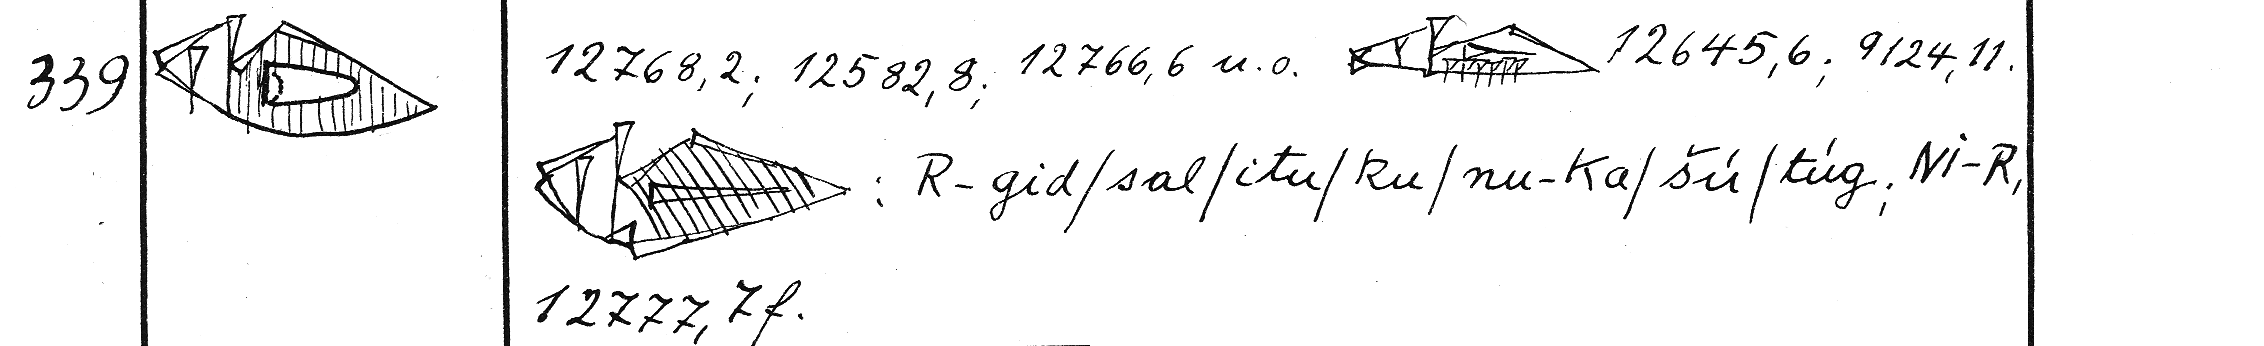 339 12768,2; 12582,8; 12766,6 u.o. 12645,6; 9124,11.
: R-gid/sal/itu/ku/nu-ka/šú/túg; NI-R,
12777,7f.